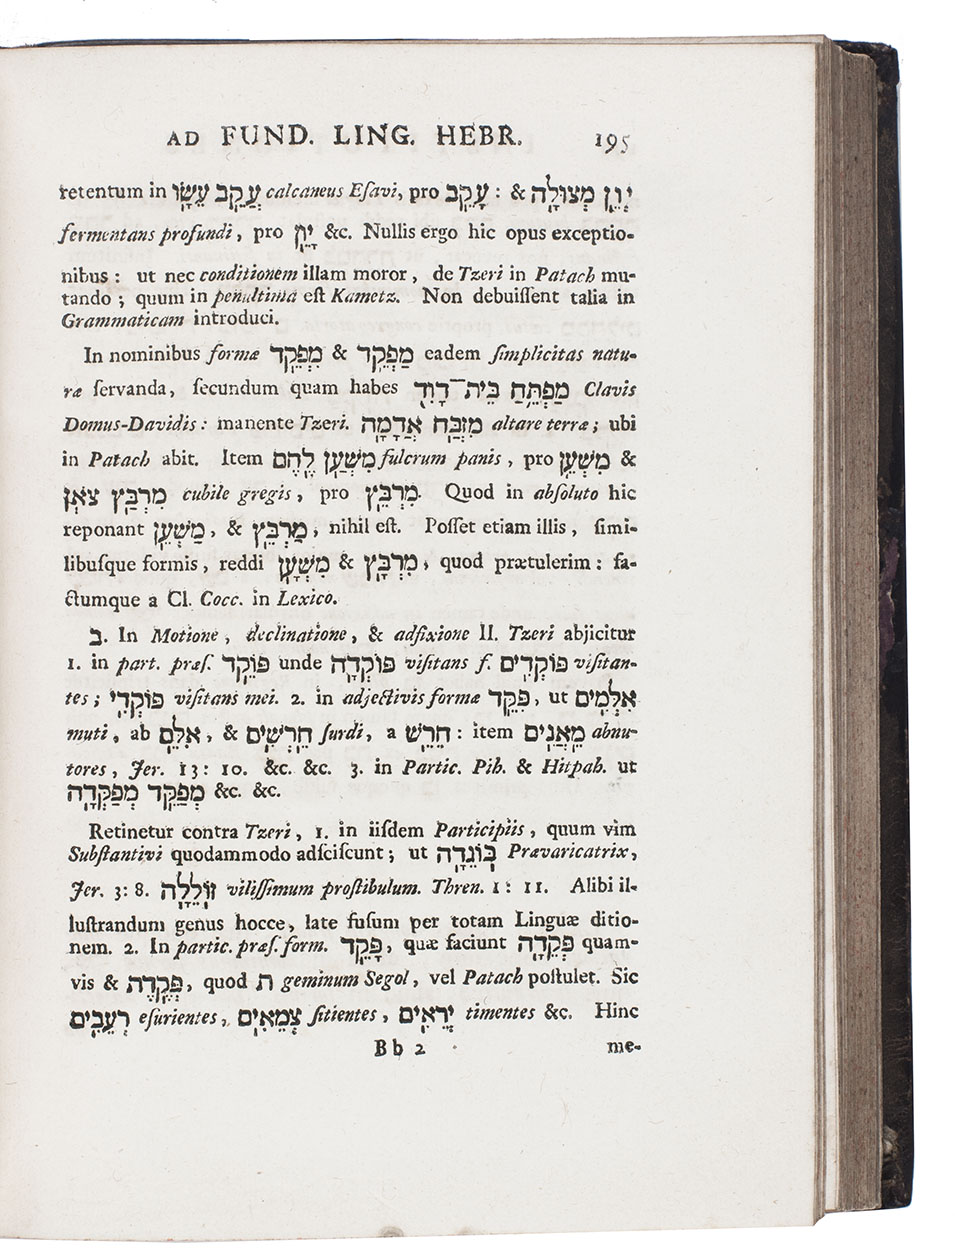 AD FUND. LING. HEBR. 195
retentum in עֲקֵב עֵשָׂו calcaneus Eſavi, pro עָקֵב : & יְוֵן מְצוּלָה
fermentans profundi, pro יָוֵן &c. Nullis ergo hic opus exceptio-
nibus : ut nec conditionem illam moror, de Tzeri in Patach mu-
tando ; quum in penultima eſt Kametz. Non debuiſſent talia in
Grammaticam introduci.
In nominibus formæ מִפְקֵד & מַפְקֵד eadem ſimplicitas natu-
ræ ſervanda, ſecundum quam habes מַפְתֵּחַ בֵּית־דָּוִד Clavis
Domus-Davidis : manente Tzeri. מִזְבַּח אֲדָמָה altare terræ ; ubi
in Patach abit. Item מִשְׁעַן לֶחֶם fulcrum panis, pro מִשְׁעֵן &
מִרְבַּץ צֹאן cubile gregis, pro מִרְבֵּץ. Quod in abſoluto hic
reponant מַשְׁעֵן, & מַרְבֵּץ, nihil eſt. Poſſet etiam illis, ſimi-
libuſque formis, reddi מִשְׁעָן & מִרְבָּץ, quod prætulerim : fa-
ctumque a Cl. Cocc. in Lexico.
ב. In Motione, declinatione, & adfixione II. Tzeri abjicitur
1. in part. præſ. פּוֹקֵד unde פּוֹקְדָה viſitans f. פּוֹקְדִים viſitan-
tes ; פּוֹקְדִי viſitans mei. 2. in adjectivis formæ פִּקֵּד, ut אִלְּמִים
muti, ab אִלֵּם, & חֵרְשִׁים ſurdi, a חֵרֵשׁ : item מֵאֲנִים abnu-
tores, Jer. 13 : 10. &c. &c. 3. in Partic. Pih. & Hitpah. ut
מְפַקֵּד מְפַקְּדָה &c. &c.
Retinetur contra Tzeri, 1. in iiſdem Participiis, quum vim
Subſtantivi quodammodo adſciſcunt ; ut בּוֹגֵדָה Prævaricatrix,
Jer. 3 : 8. זוֹלֵלָה viliſſimum proſtibulum. Thren. 1 : 11. Alibi il-
luſtrandum genus hocce, late fuſum per totam Linguæ ditio-
nem. 2. In partic. præſ. form. פָּקֵד, quæ faciunt פְּקֵדָה quam-
vis & פְּקֶדֶת, quod ת geminum Segol, vel Patach poſtulet. Sic
רְעֵבִים eſurientes, צְמֵאִים ſitientes, יְרֵאִים timentes &c. Hinc
Bb 2 me-